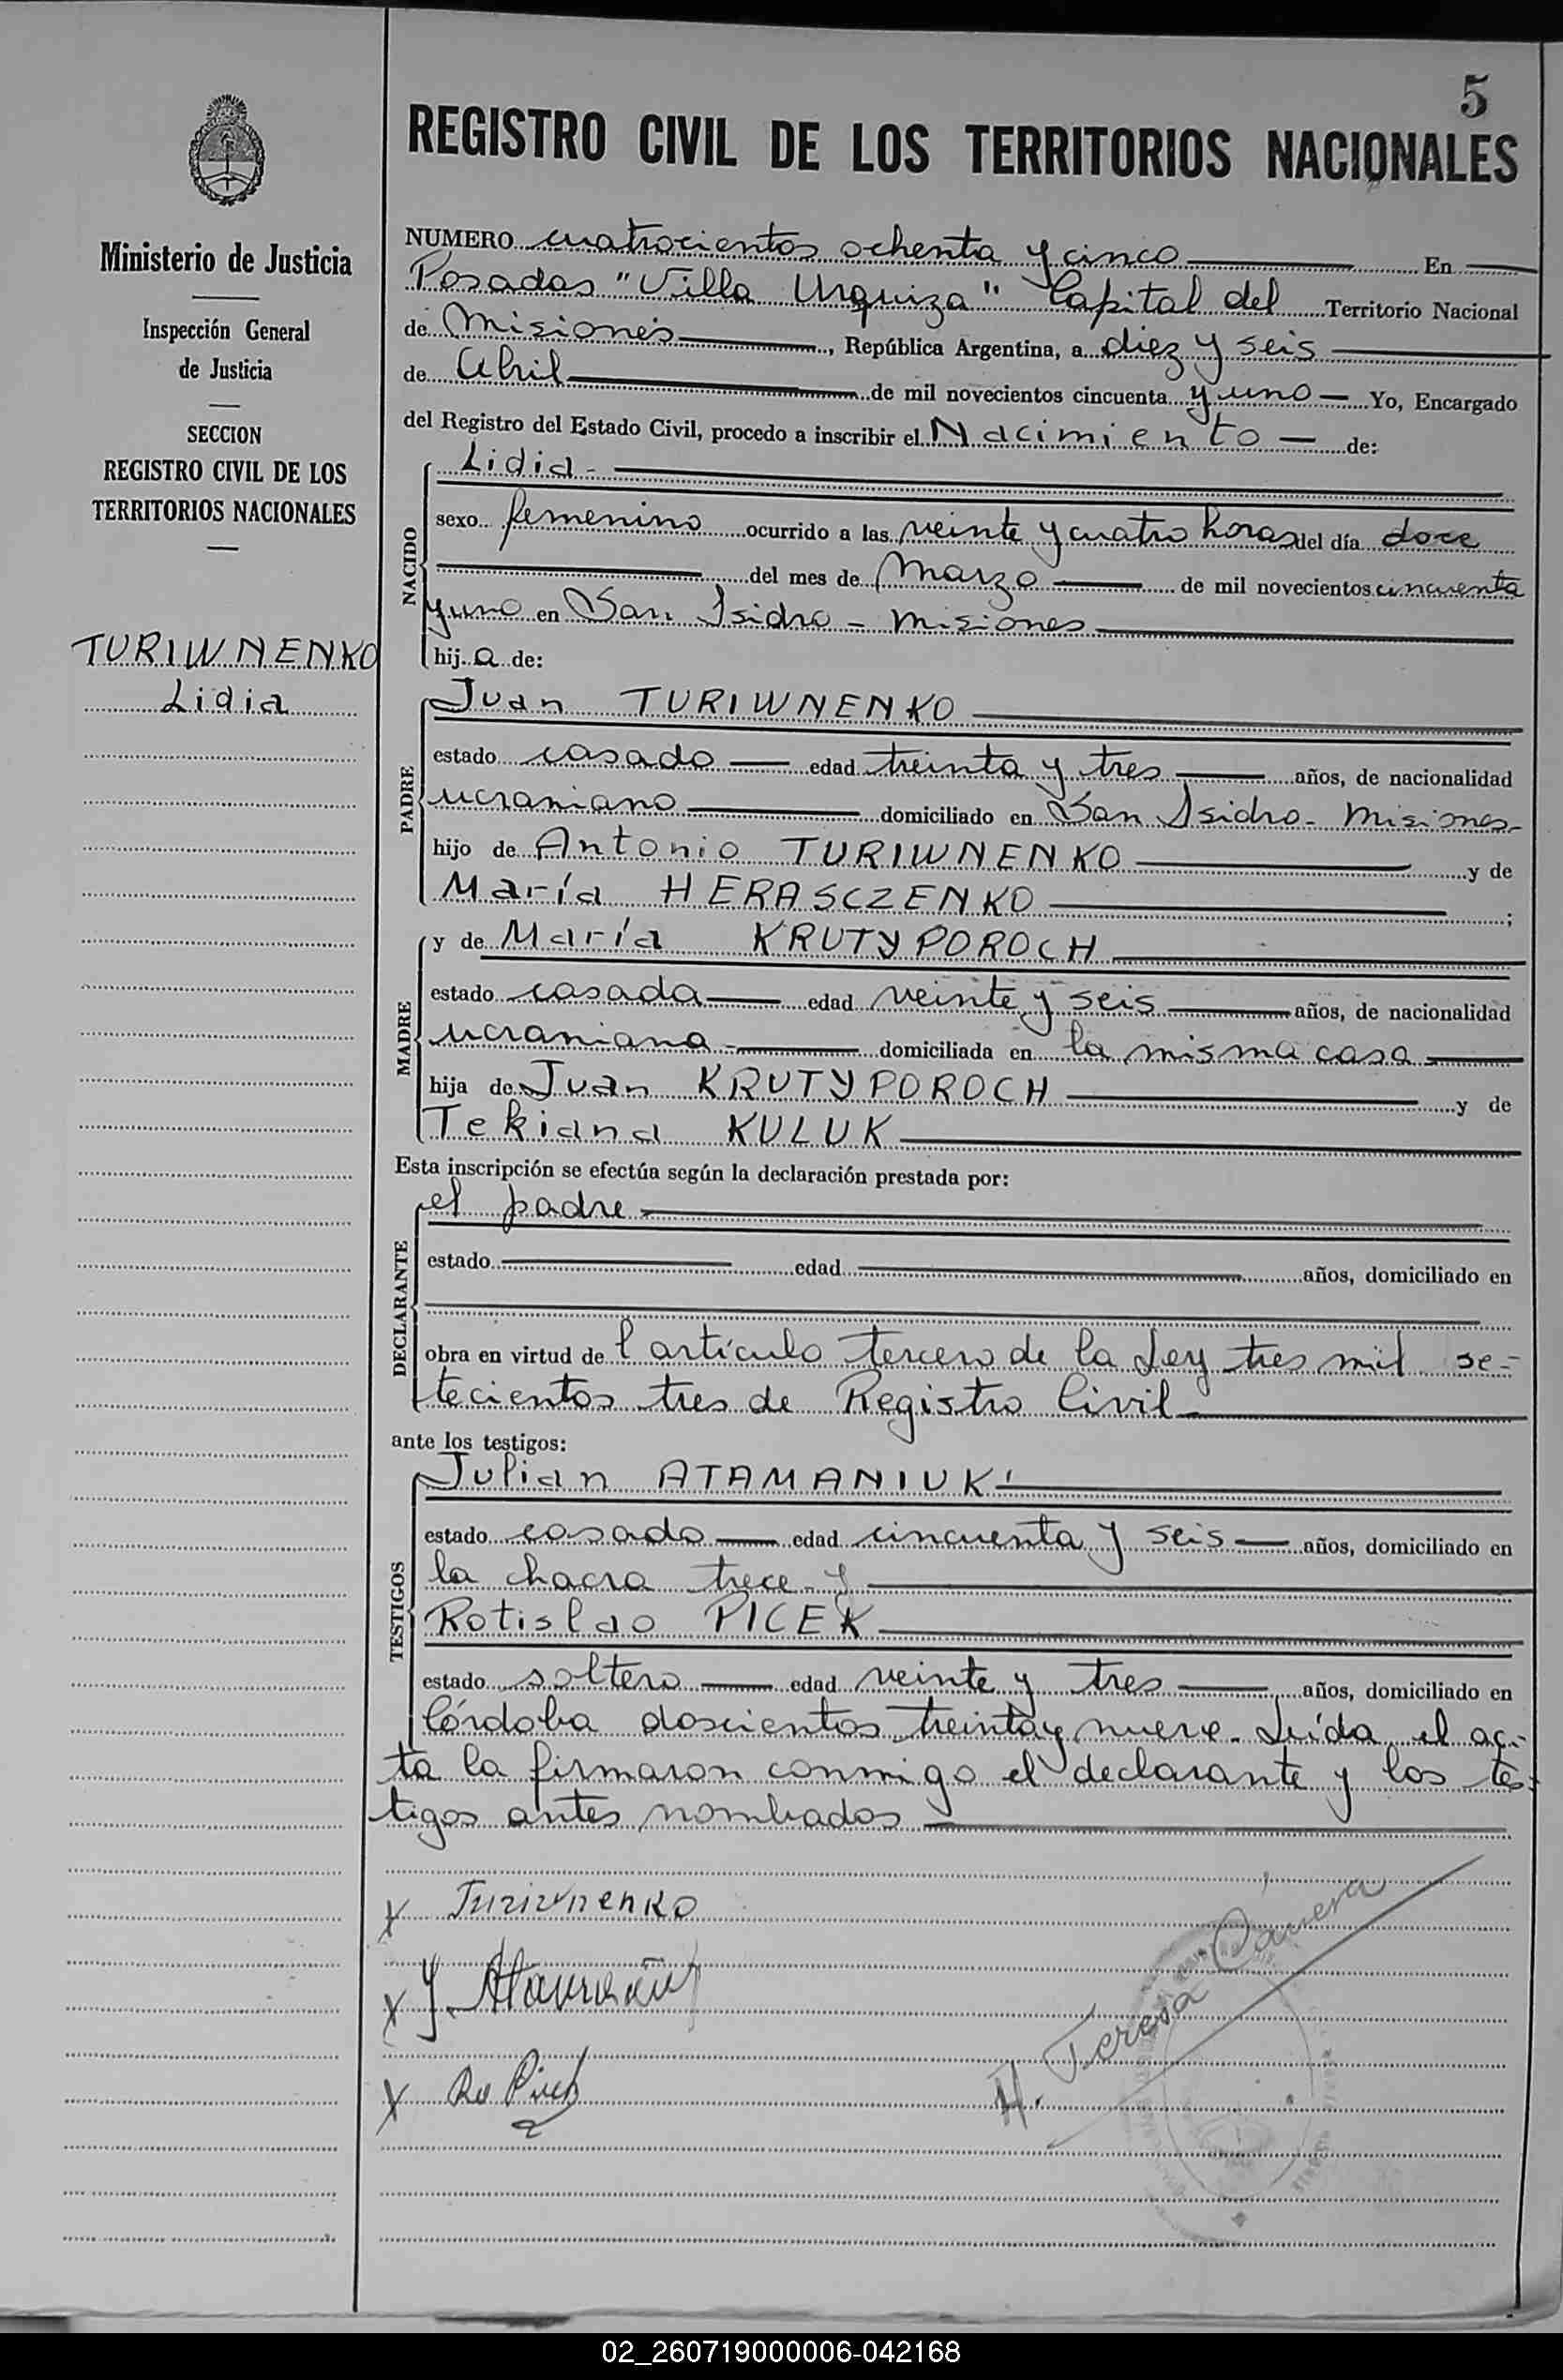 5
REGISTRO CIVIL DE LOS TERRITORIOS NACIONALES
Ministerio de Justicia
Inspección General
de Justicia
SECCION
REGISTRO CIVIL DE LOS
TERRITORIOS NACIONALES
TURIWNENKO
Lidia
NUMERO cuatrocientos ochenta y cinco En
Posadas "Villa Urquiza" Capital del Territorio Nacional
de Misiones, República Argentina, a diez y seis
de Abril de mil novecientos cincuenta y uno Yo, Encargado
del Registro del Estado Civil, procedo a inscribir el Nacimiento de:
NACIDO
Lidia
sexo femenino ocurrido a las veinte y cuatro horas del día doce
del mes de Marzo de mil novecientos cincuenta
y uno en San Isidro - Misiones
hija de:
PADRE
Juan TURIWNENKO
estado casado edad treinta y tres años, de nacionalidad
ucraniano domiciliado en San Isidro - Misiones
hijo de Antonio TURIWNENKO y de
María HERASCZENKO ;
MADRE
y de María KRUTYPOROCH
estado casada edad veinte y seis años, de nacionalidad
ucraniana domiciliada en la misma casa
hija de Juan KRUTYPOROCH y de
Tekiana KULUK
Esta inscripción se efectúa según la declaración prestada por:
DECLARANTE
el padre
estado edad años, domiciliado en
obra en virtud de l artículo tercero de la Ley tres mil se-
tecientos tres de Registro Civil
ante los testigos:
TESTIGOS
Julian ATAMANIUK
estado casado edad cincuenta y seis años, domiciliado en
la chacra trece y
Rotislao PICEK
estado soltero edad veinte y tres años, domiciliado en
Córdoba doscientos treinta y nueve. Leída el ac-
ta la firmaron conmigo el declarante y los tes-
tigos antes nombrados
X Turiwnenko
X J. Atamaniuk
X
H. Teresa
02_260719000006-042168